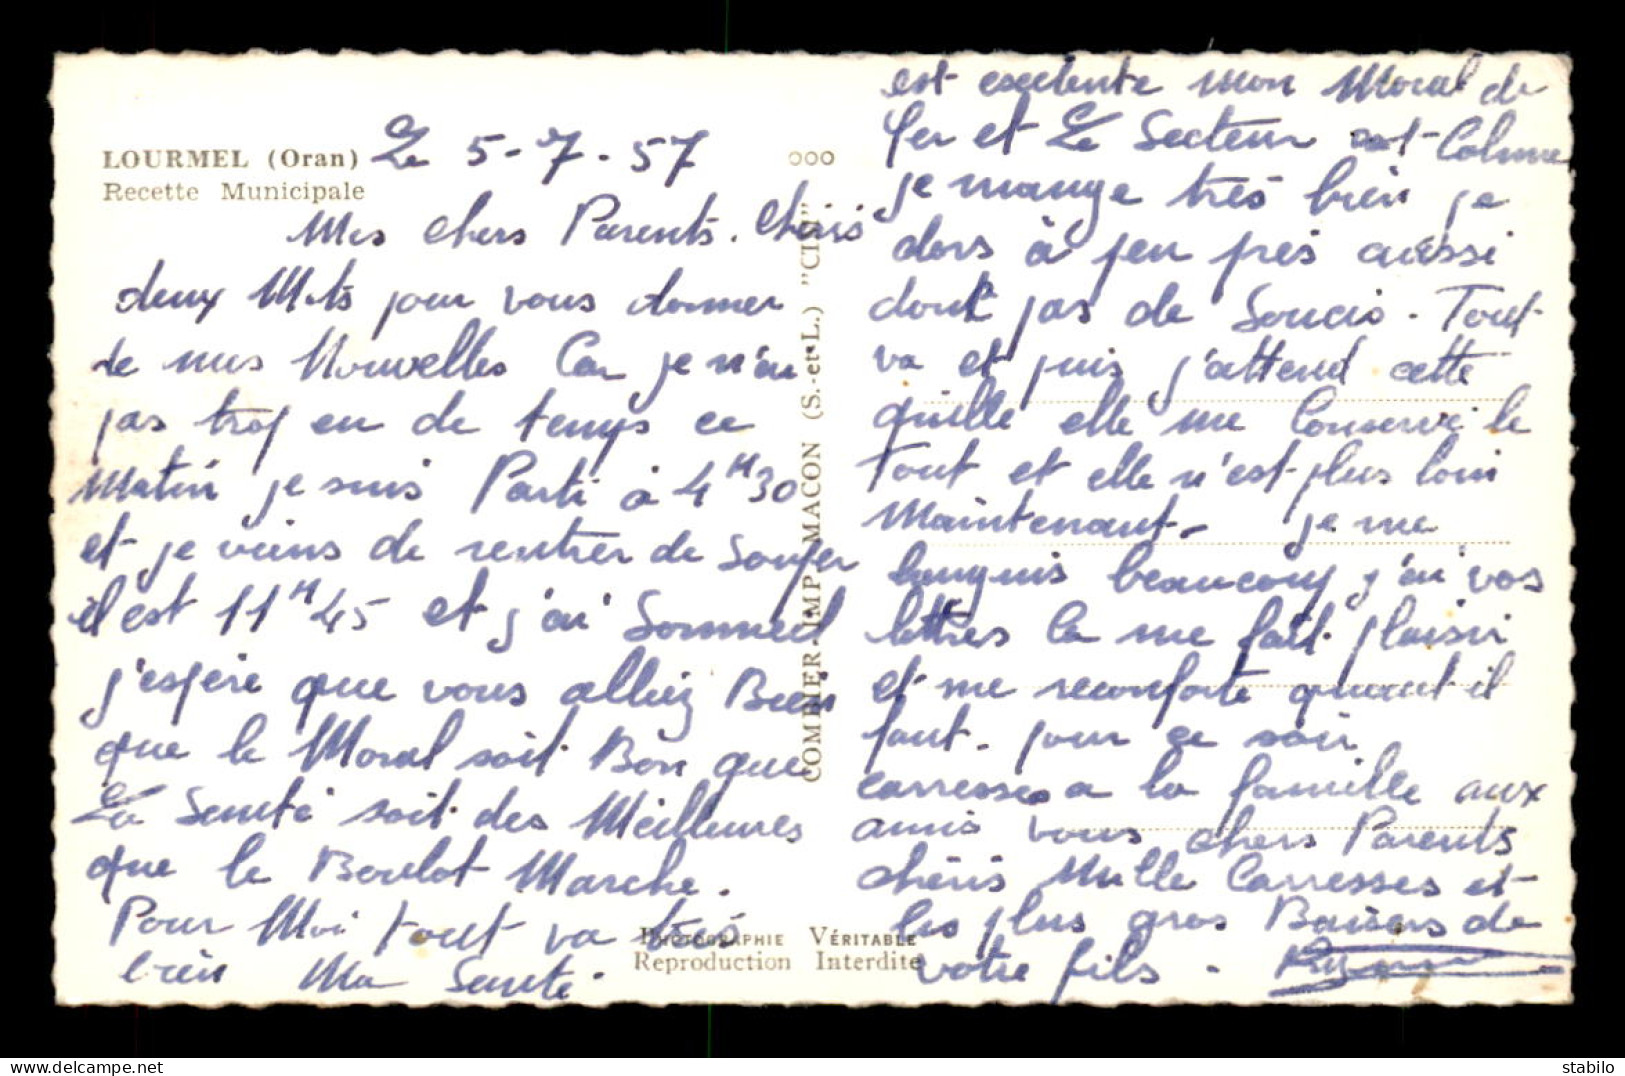 LOURMEL (Oran) Le 5-7-57
Recette Municipale
Mes chers Parents. Chéris
deux Mots pour vous donner
de mes Nouvelles Car je n'ai
pas trop eu de temps ce
Matin je suis Parti à 4H30
et je viens de rentrer de Souper
il est 11H45 et j'ai Sommeil
j'espère que vous alliez Bien
que le Moral soit Bon que
La Santé soit des Meilleures
que le Boulot Marche.
Pour Moi tout va très
bien Ma Santé.
ooo
COMBIER IMP. MACON (S.-et-L.) "CIM"
PHOTOGRAPHIE VÉRITABLE
Reproduction Interdite
est excelente mon Moral de
fer et Le Secteur est Calme
je mange très bien je
dors à peu près aussi
donc pas de Soucis. Tout
va et puis j'attend cette
quille elle me Conserve le
Tout et elle n'est plus loin
Maintenant. je me
languis beaucoup j'ai vos
lettres ca me fait plaisir
et me reconforte quant il
faut. pour ce soir
carresses a la famille aux
amis vous chers Parents
chéris Mille Carresses et
les plus gros Baisers de
votre fils.